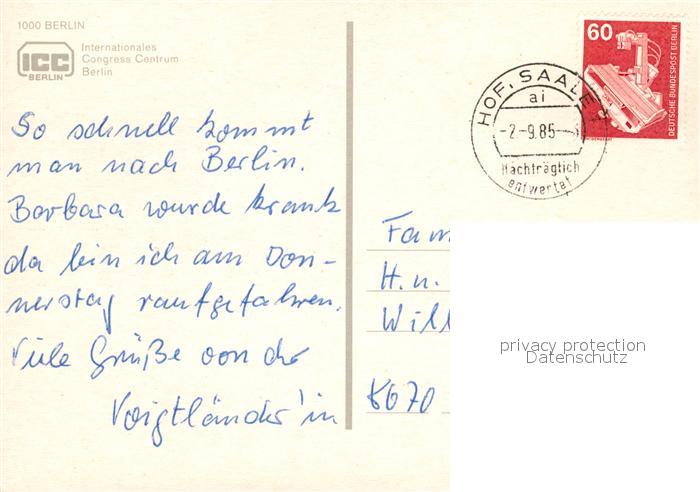 1000 BERLIN
ICC
BERLIN
Internationales
Congress Centrum
Berlin
So schnell kommt
man nach Berlin.
Barbara wurde krank
da bin ich am Don-
nerstag raufgefahren.
Viele Grüße von der
Voigtländer'in
60
DEUTSCHE BUNDESPOST BERLIN
HOF, SAALE
ai
-2.-9.85-
Nachträglich
entwertet
Fam
H. u.
Will
8670
privacy protection
Datenschutz